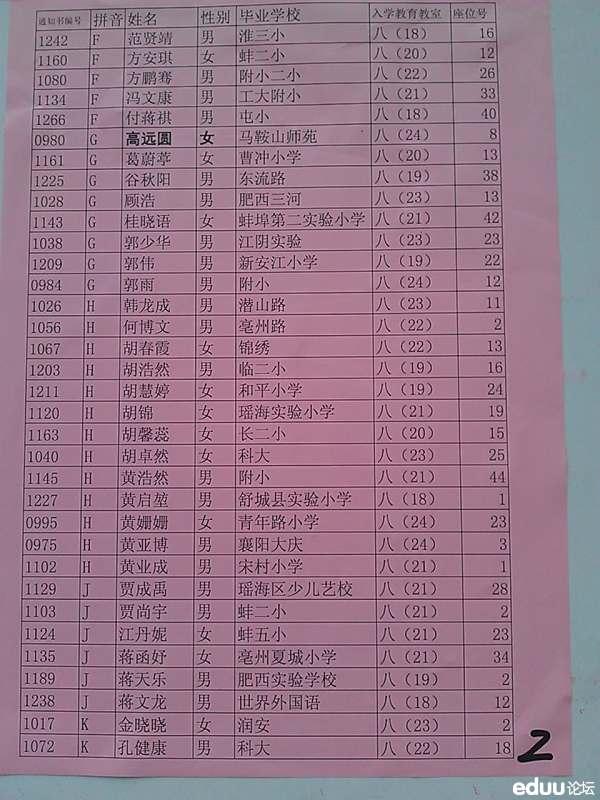 通知书编号 拼音 姓名 性别 毕业学校 入学教育教室 座位号
1242 F 范贤靖 男 淮三小 八（18） 16
1160 F 方安琪 女 蚌二小 八（20） 12
1080 F 方鹏骞 男 附小二小 八（22） 26
1134 F 冯文康 男 工大附小 八（21） 33
1266 F 付蒋祺 男 屯小 八（18） 40
0980 G 高远圆 女 马鞍山师苑 八（24） 8
1161 G 葛蔚葶 女 曹冲小学 八（20） 13
1225 G 谷秋阳 男 东流路 八（19） 38
1028 G 顾浩 男 肥西三河 八（23） 13
1143 G 桂晓语 女 蚌埠第二实验小学 八（21） 42
1038 G 郭少华 男 江阴实验 八（23） 23
1209 G 郭伟 男 新安江小学 八（19） 22
0984 G 郭雨 男 附小 八（24） 12
1026 H 韩龙成 男 潜山路 八（23） 11
1056 H 何博文 男 亳州路 八（22） 2
1067 H 胡春霞 女 锦绣 八（22） 13
1203 H 胡浩然 男 临二小 八（19） 16
1211 H 胡慧婷 女 和平小学 八（19） 24
1120 H 胡锦 女 瑶海实验小学 八（21） 19
1163 H 胡馨蕊 女 长二小 八（20） 15
1040 H 胡卓然 女 科大 八（23） 25
1145 H 黄浩然 男 附小 八（21） 44
1227 H 黄启堃 男 舒城县实验小学 八（18） 1
0995 H 黄姗姗 女 青年路小学 八（24） 23
0975 H 黄亚博 男 襄阳大庆 八（24） 3
1102 H 黄业成 男 宋村小学 八（21） 1
1129 J 贾成禹 男 瑶海区少儿艺校 八（21） 28
1103 J 贾尚宇 男 蚌二小 八（21） 2
1124 J 江丹妮 女 蚌五小 八（21） 23
1135 J 蒋函妤 女 亳州夏城小学 八（21） 34
1189 J 蒋天乐 男 肥西实验学校 八（19） 2
1238 J 蒋文龙 男 世界外国语 八（18） 12
1017 K 金晓晓 女 润安 八（23） 2
1072 K 孔健康 男 科大 八（22） 18
2
eduu论坛